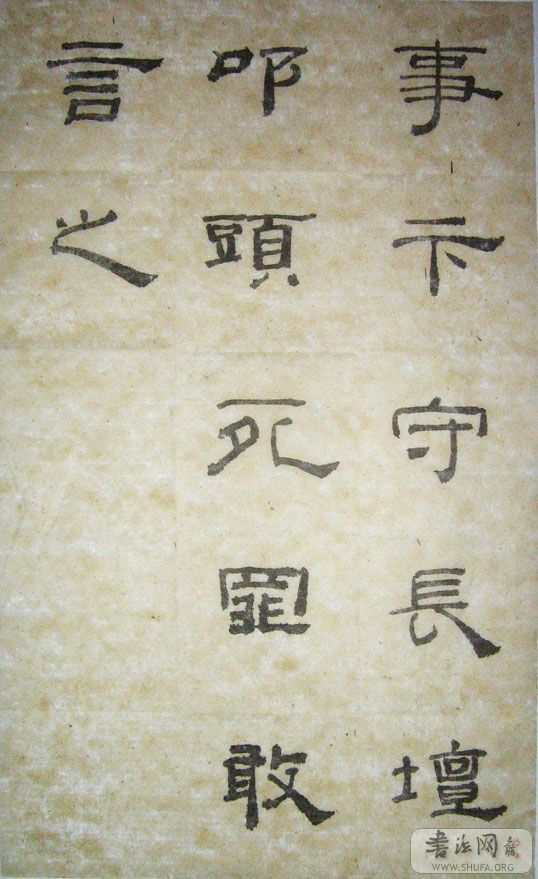 事卞守長壇
叩頭死罪敢
言之
書法网
WWW.SHUFA.ORG